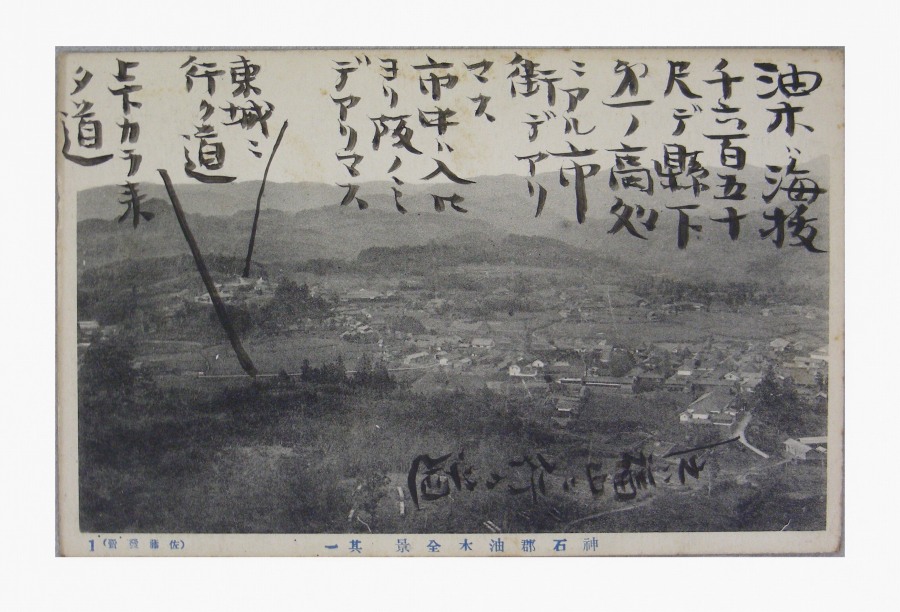 油木ハ海拔
千六百五十
尺デ縣下
第一ノ高処
ニアル市
街デアリ
マス
市中ハ入ル
ヨリ阪ノミ
デアリマス
東城ニ
行ク道
上下カラ来
タ道
福山ニ行ク道
神石郡油木全景 其一
(佐藤發行)
1